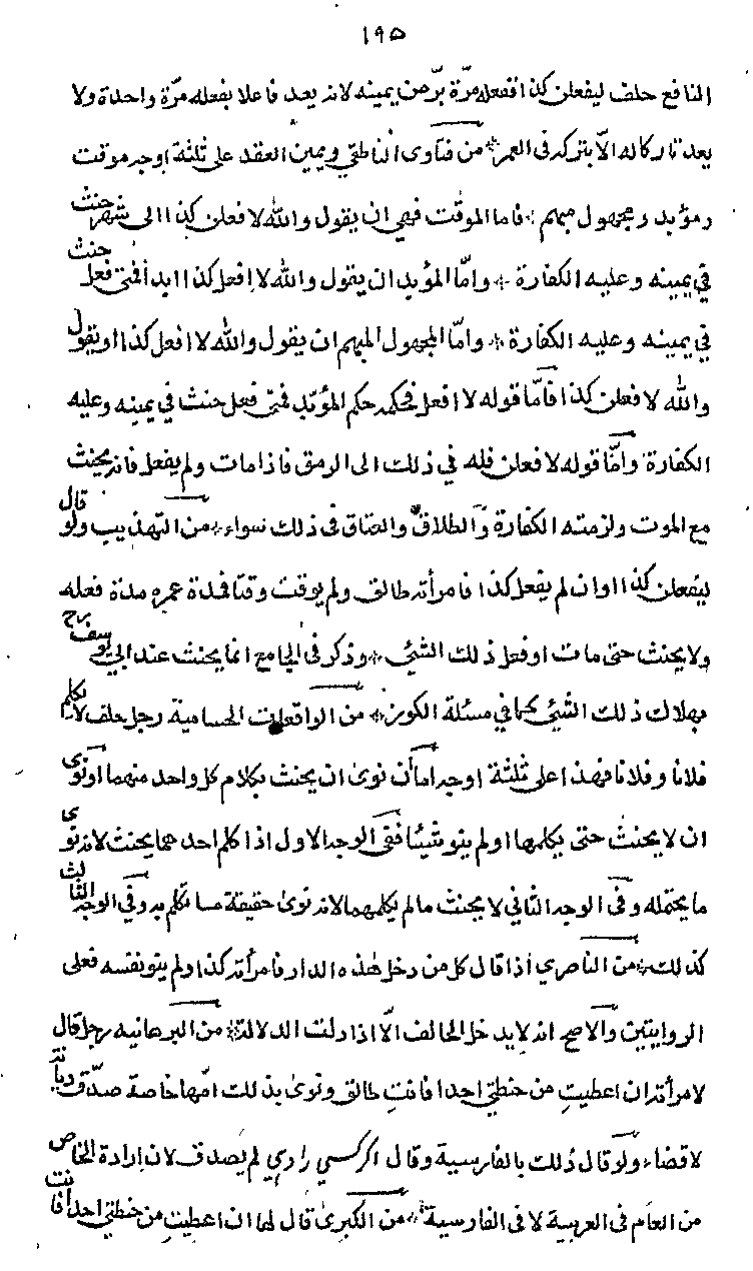 ١٩٥
النافع حلف ليفعلن كذا ففعله مرّة برّ من يمينه لانه يعد فاعلا بفعله مرّة واحدة ولا
يعد تاركا له الّا بتركه فى العمر ※ من فتاوى الناطفي ويمين العقد على ثلثة اوجه موقت
ومؤبد ومجهول مبهم ※ فاما الموقت فهي ان يقول والله لافعلن كذا الى شهر حنث
في يمينه وعليه الكفارة ※ وامّا المؤبد ان يقول والله لا افعل كذا ابدا فمتى فعل حنث
في يمينه وعليه الكفارة ※ وامّا المجهول المبهم ان يقول والله لا افعل كذا او يقول
والله لافعلن كذا فامّا قوله لا افعل فحكمه حكم المؤبّد فمتى فعل حنث في يمينه وعليه
الكفارة وامّا قوله لافعلن فله في ذلك الى الرمق فاذا مات ولم يفعل فانه يحنث
مع الموت ولزمته الكفارة والطلاق والعتاق فى ذلك سواء ※ من التهذيب ولو قال
ليفعلن كذا او ان لم يفعل كذا فامرأته طالق ولم يوقت وقتا فمدة عمره مدة فعله
ولا يحنث حتى مات او فعل ذلك الشئ ※ وذكر فى الجامع انما يحنث عند ابي يوسف رح
بهلاك ذلك الشئ كما في مسئلة الكوز ※ من الواقعات الحسامية رجل حلف لا يكلم
فلانا وفلانا فهذا على ثلثة اوجه اما ان نوى ان يحنث بكلام كل واحد منهما او نوى
ان لا يحنث حتى يكلمها او لم ينو شيئا ففى الوجه الاول اذا كلم احدهما يحنث لانه نوى
ما يحتمله وفى الوجه الثاني لا يحنث مالم يكلمهما لانه نوى حقيقة ما تكلم به وفي الوجه الثالث
كذلك ※ من الناصري اذا قال كل من دخل هذه الدار فامرأته كذا ولم ينو نفسه فعلى
الروايتين والاصح انه لا يدخل الحالف الّا اذا دلت الدلالة ※ من البرهانيه رجل قال
لامرأته ان اعطيتِ من حنطتي احدا فانتِ طالق ونوى بذلك امّها خاصة صدّق ديانة
لا قضاء ولو قال ذلك بالفارسية وقال اكر كسي را دي لم يصدق لان ارادة الخاص
من العام فى العربية لا فى الفارسية ※ من الكبرى قال لها ان اعطيتِ من حنطتي احدا فانت